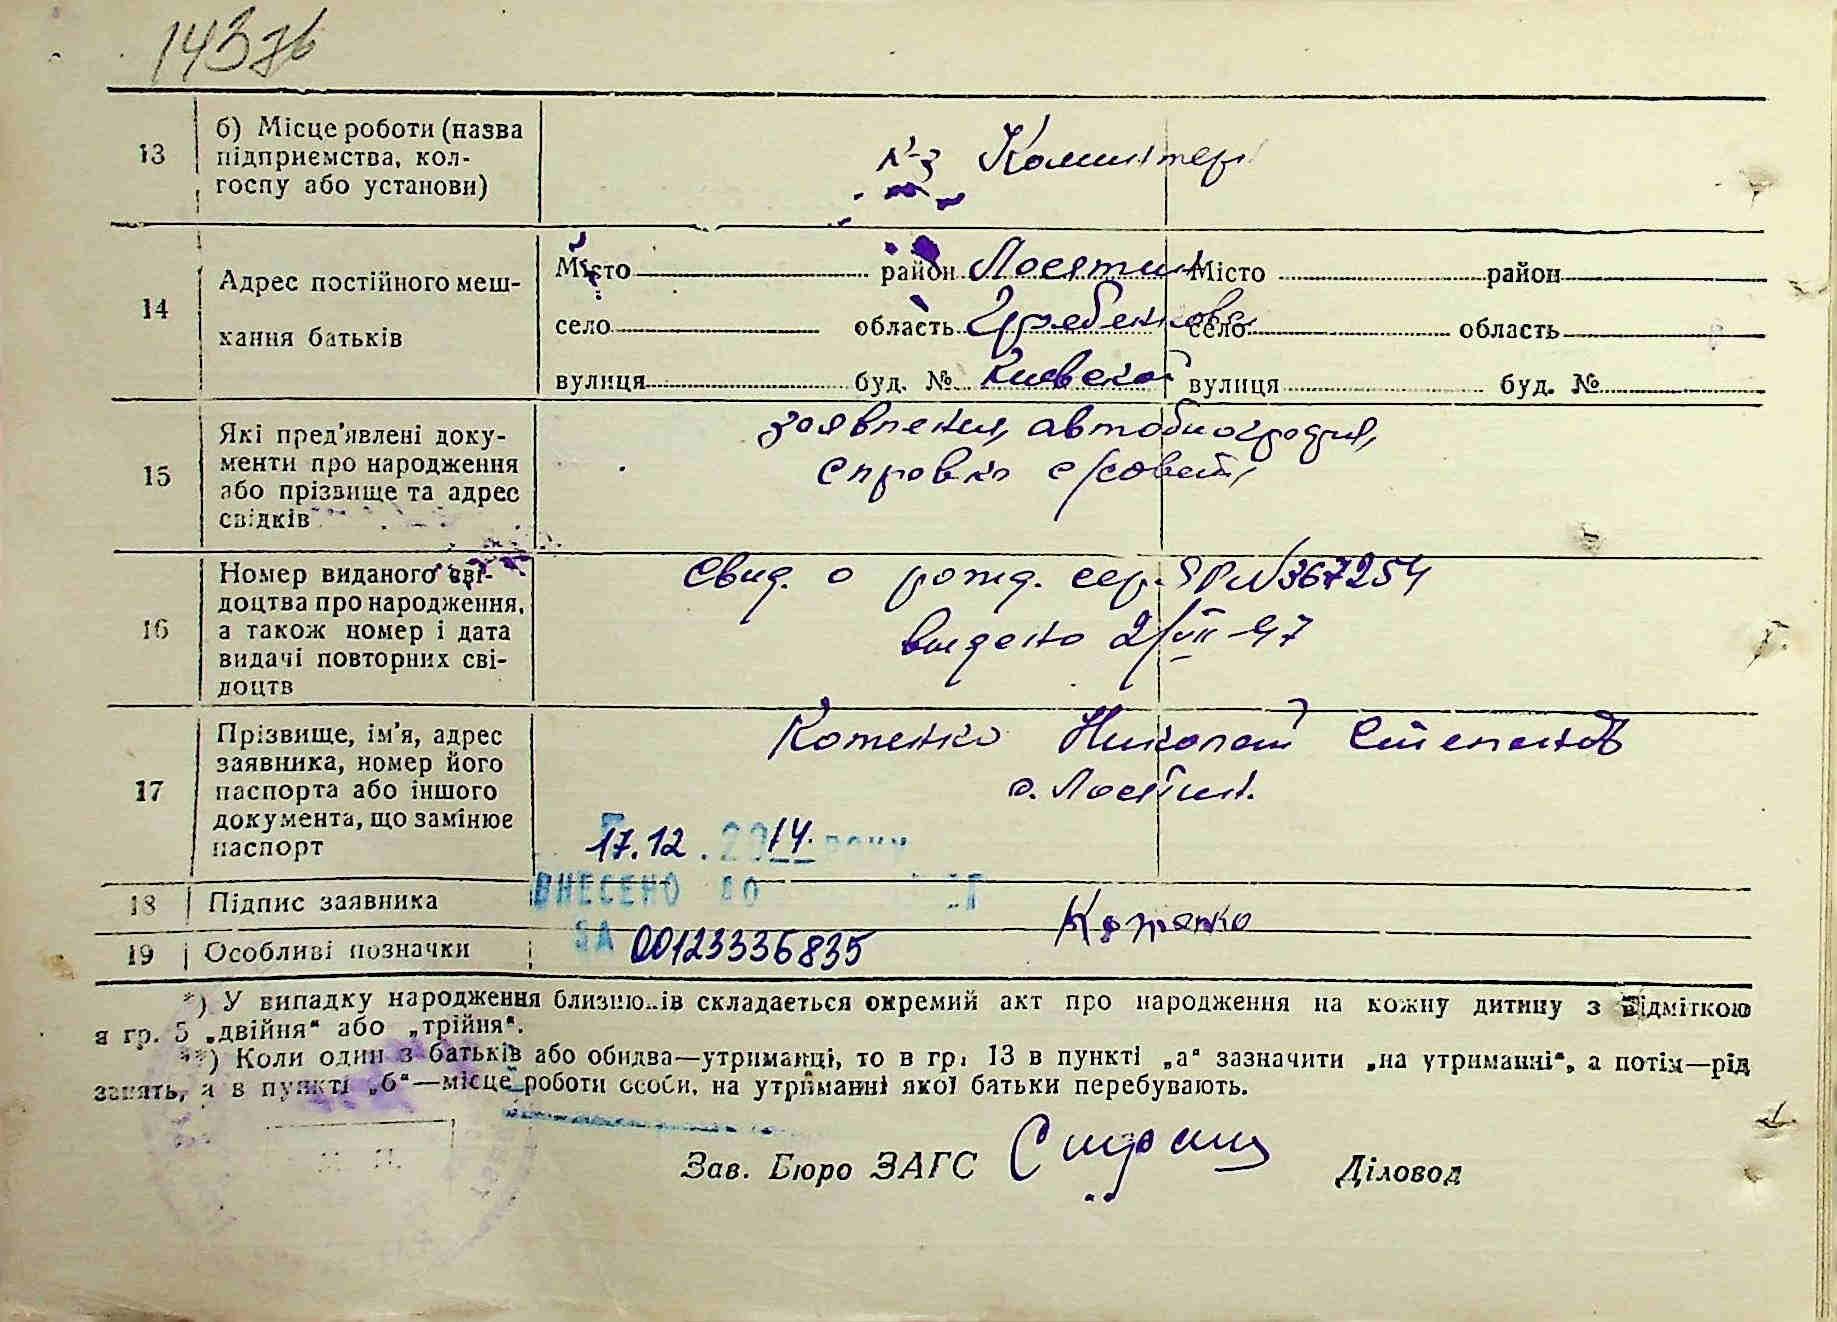 13
б) Місце роботи (назва
підприємства, кол-
госпу або установи)
к-з Коминтерн
14
Адрес постійного меш-
кання батьків
Місто район Лосятин Місто район
село область Гребенков село область
вулиця буд. № Киевской вулиця буд. №
15
Які пред'явлені доку-
менти про народження
або прізвище та адрес
свідків
заявления, автобиография,
справка с/совета,
16
Номер виданого сві-
доцтва про народження,
а також номер і дата
видачі повторних сві-
доцтв
Свид. о рожд. сер. № 367254
выдано 2/VII-47
17
Прізвище, ім'я, адрес
заявника, номер його
паспорта або іншого
документа, що замінює
паспорт
Котенко Николай Степанов
с. Лосятин.
17.12.2014. року
ВНЕСЕНО ДО
ЗА 00123336835
18
Підпис заявника
Котенко
19
Особливі позначки
*) У випадку народження близнюків складається окремий акт про народження на кожну дитину з відміткою
в гр. 5 „двійня“ або „трійня“.
**) Коли один з батьків або обидва—утриманці, то в гр. 13 в пункті „а“ зазначити „на утриманні“, а потім—рід
занять, а в пункті „б“—місце роботи особи, на утриманні якої батьки перебувають.
М. П.
Зав. Бюро ЗАГС
Діловод